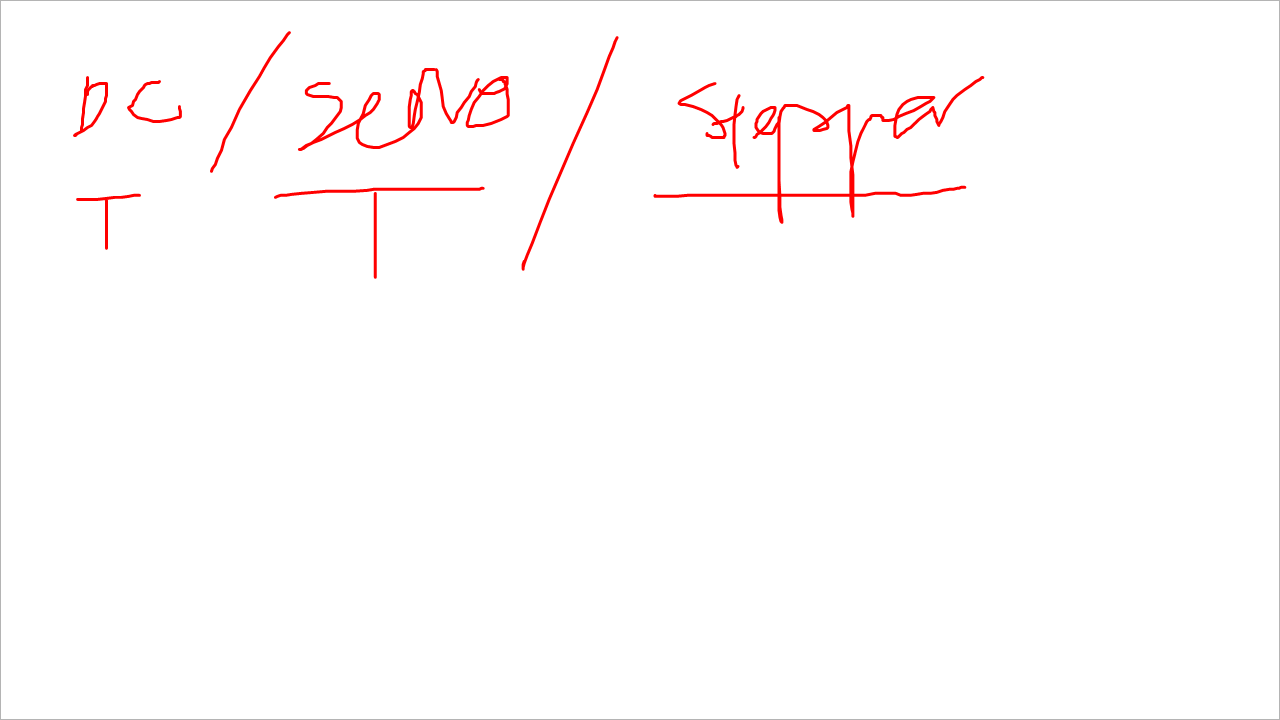 DC / Servo / Stepper